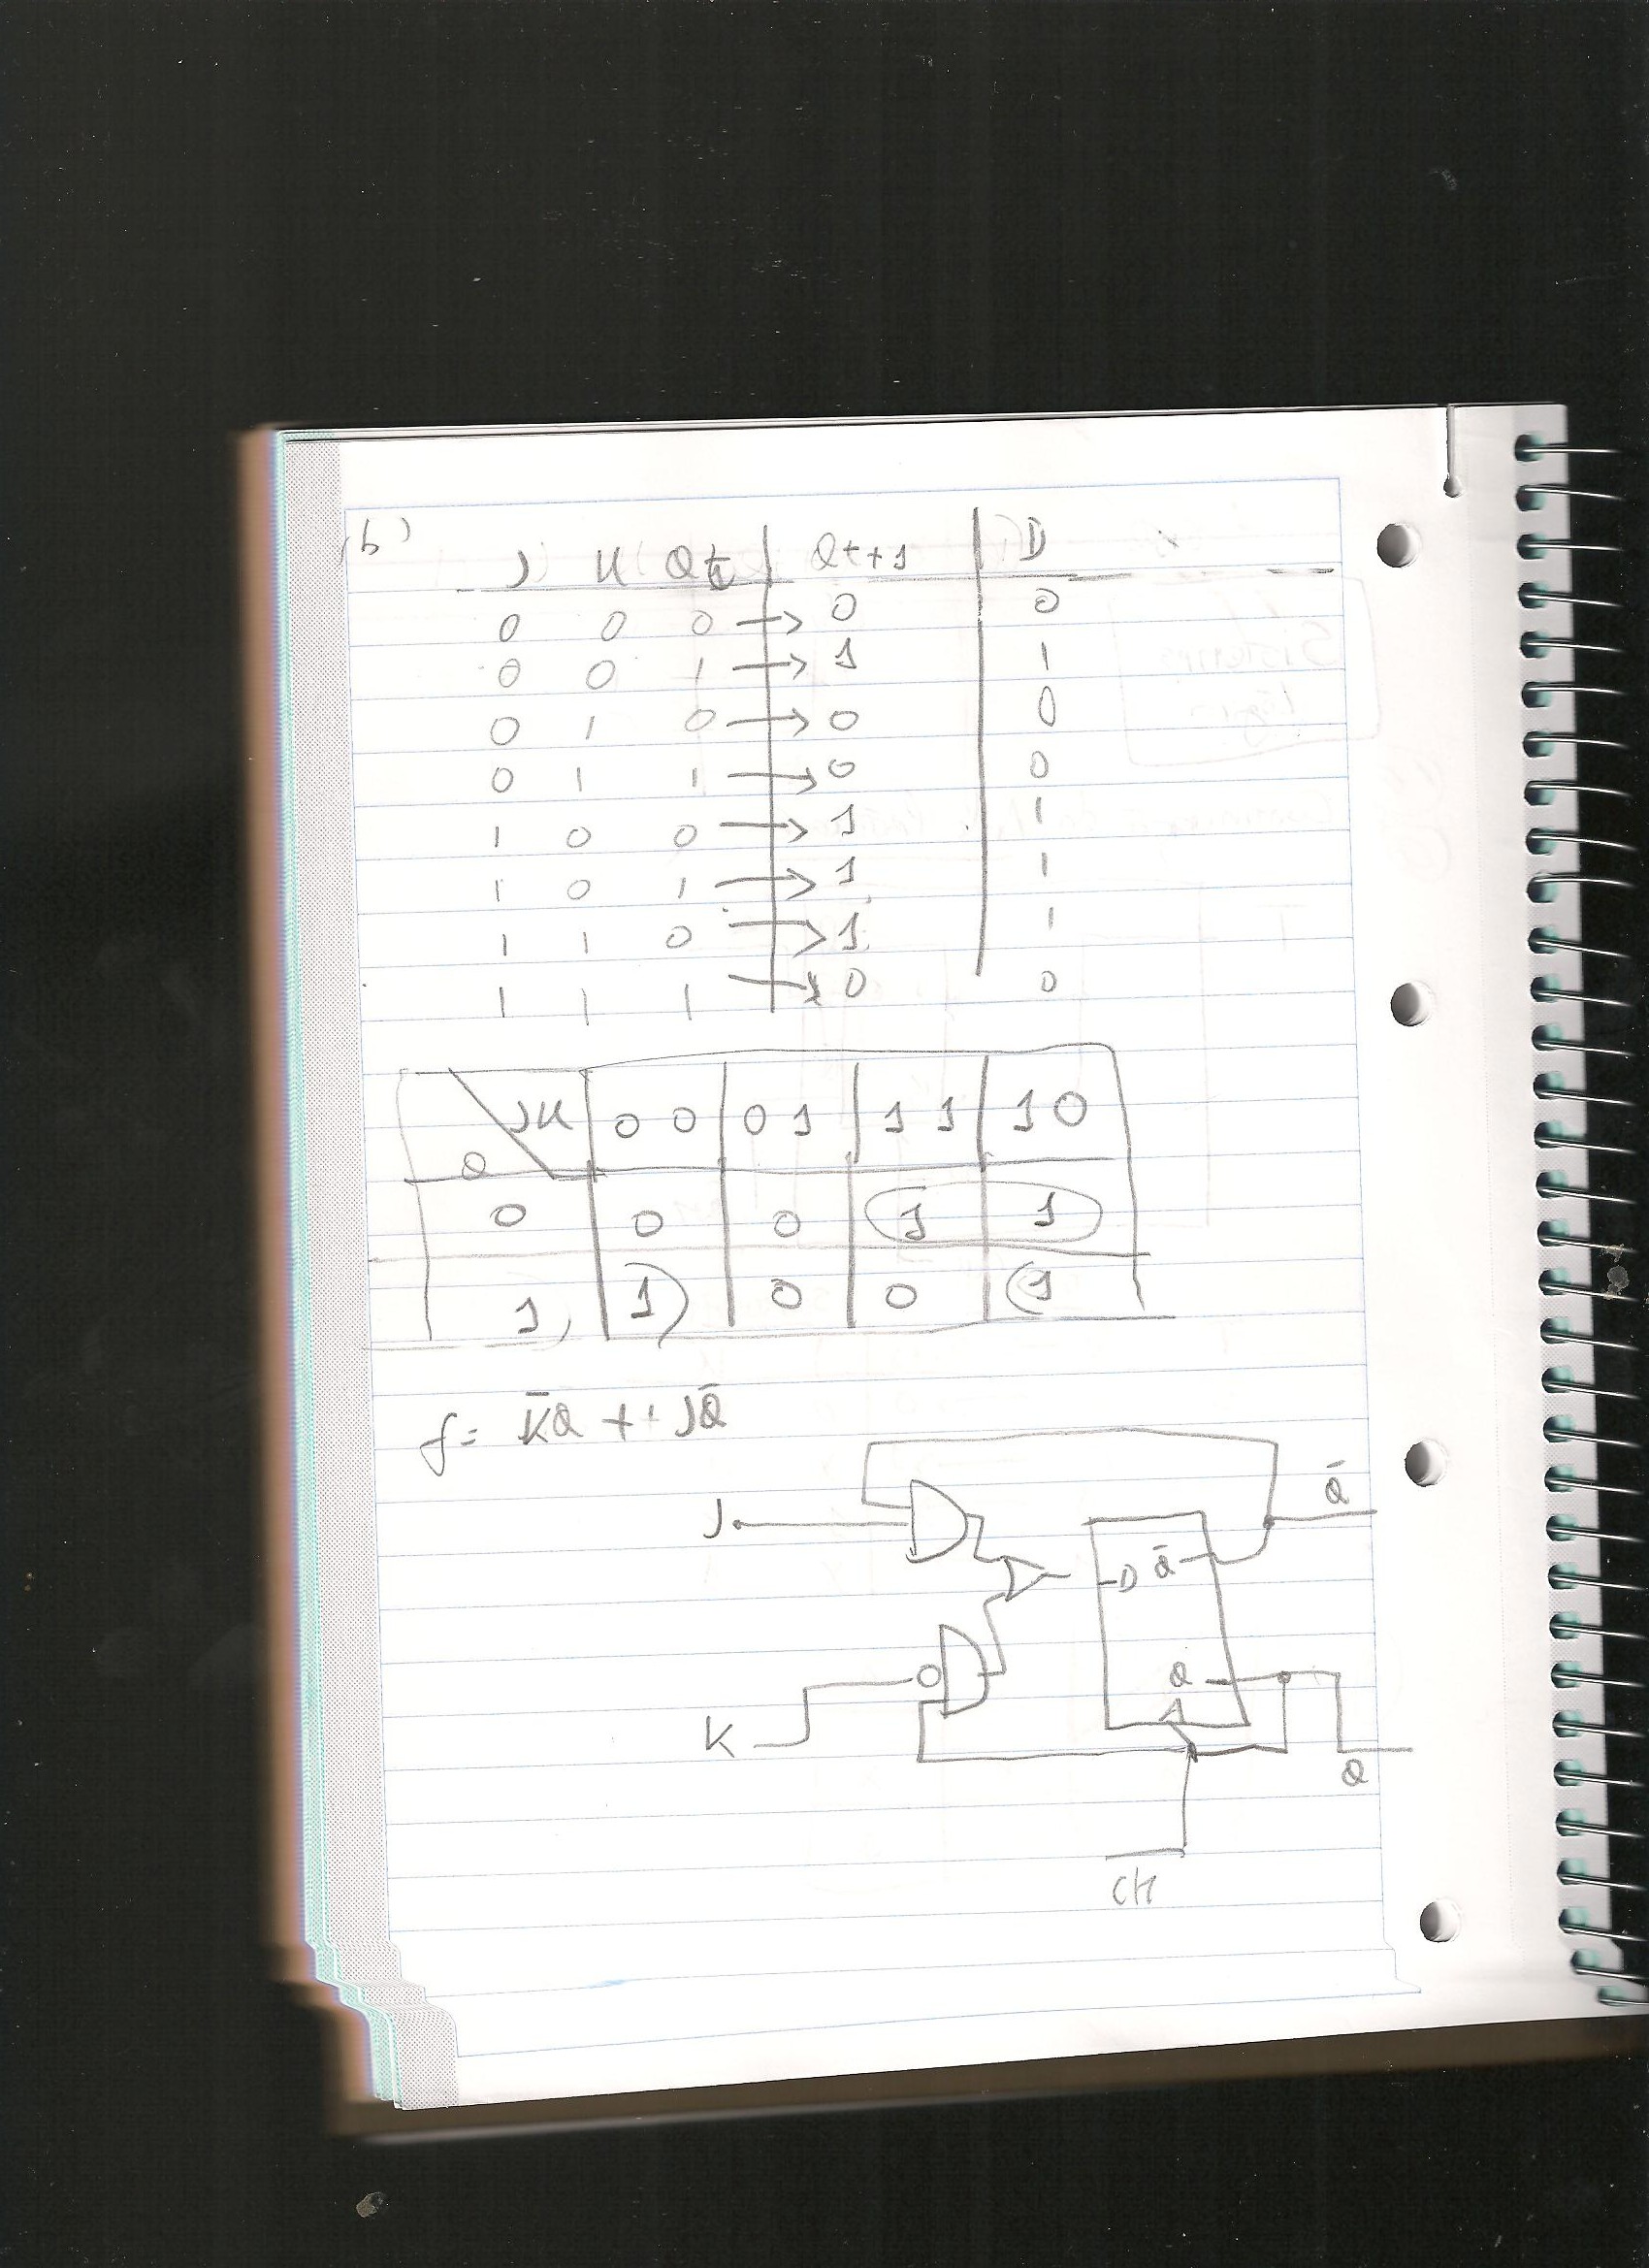 b)
J K Qt Qt+1 D
0 0 0 → 0 0
0 0 1 → 1 1
0 1 0 → 0 0
0 1 1 → 0 0
1 0 0 → 1 1
1 0 1 → 1 1
1 1 0 → 1 1
1 1 1 → 0 0
JK 00 01 11 10
Q
0 0 0 1 1
1 1 0 0 1
f = K̄Q + JQ̄
Q̄
J
D Q̄
Q
K
Q
CK